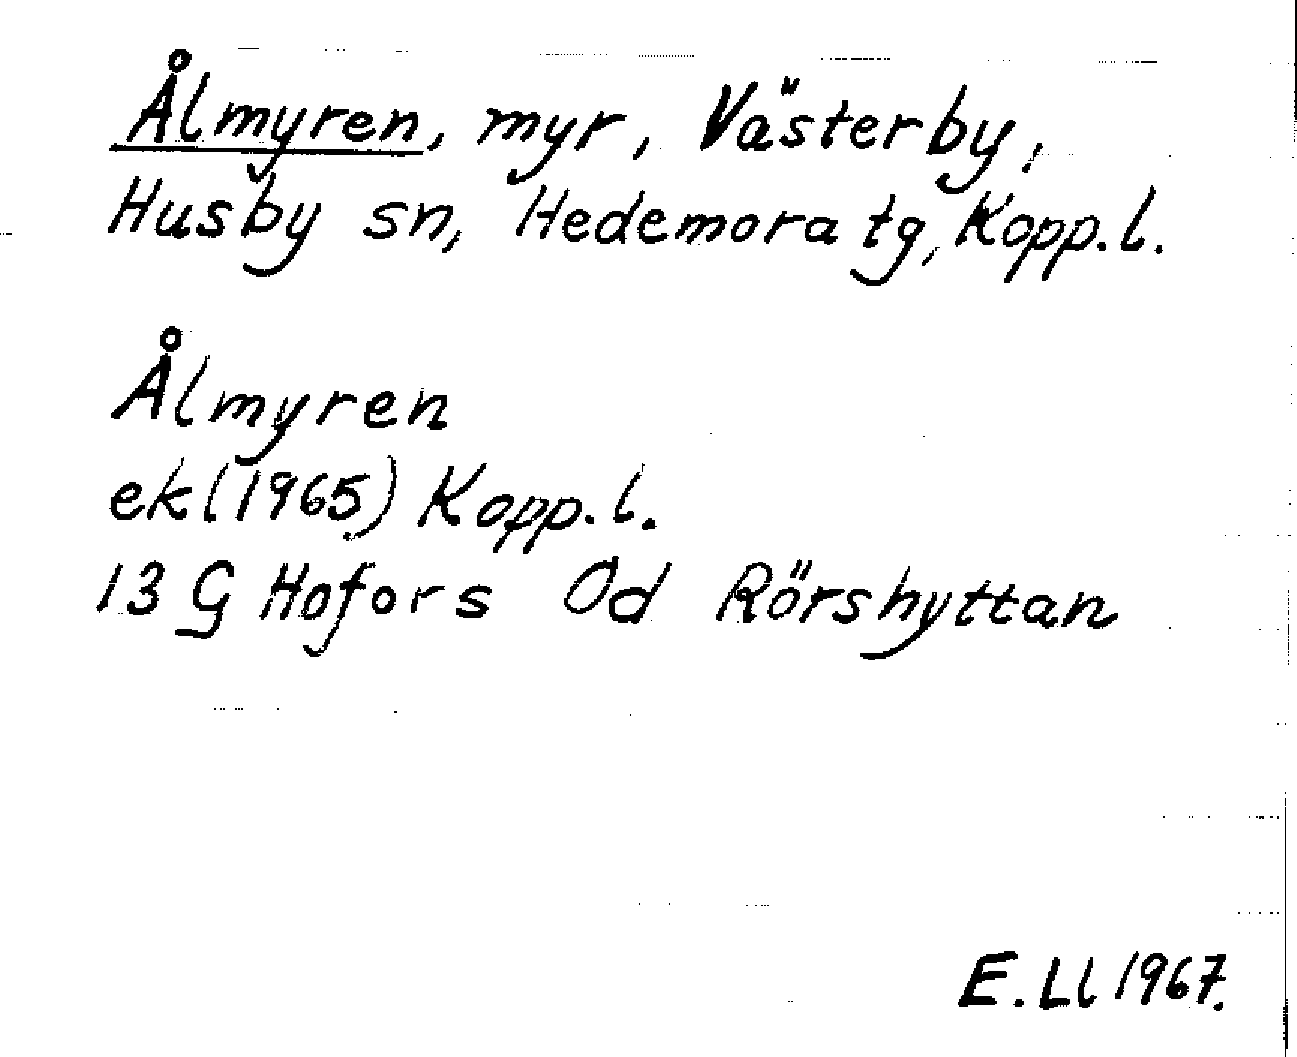 Ålmyren, myr, Västerby,
Husby sn, Hedemora tg, Kopp. l.
Ålmyren
ek (1965) Kopp. l.
13 G Hofors 0d Rörshyttan
E. Ll 1967.